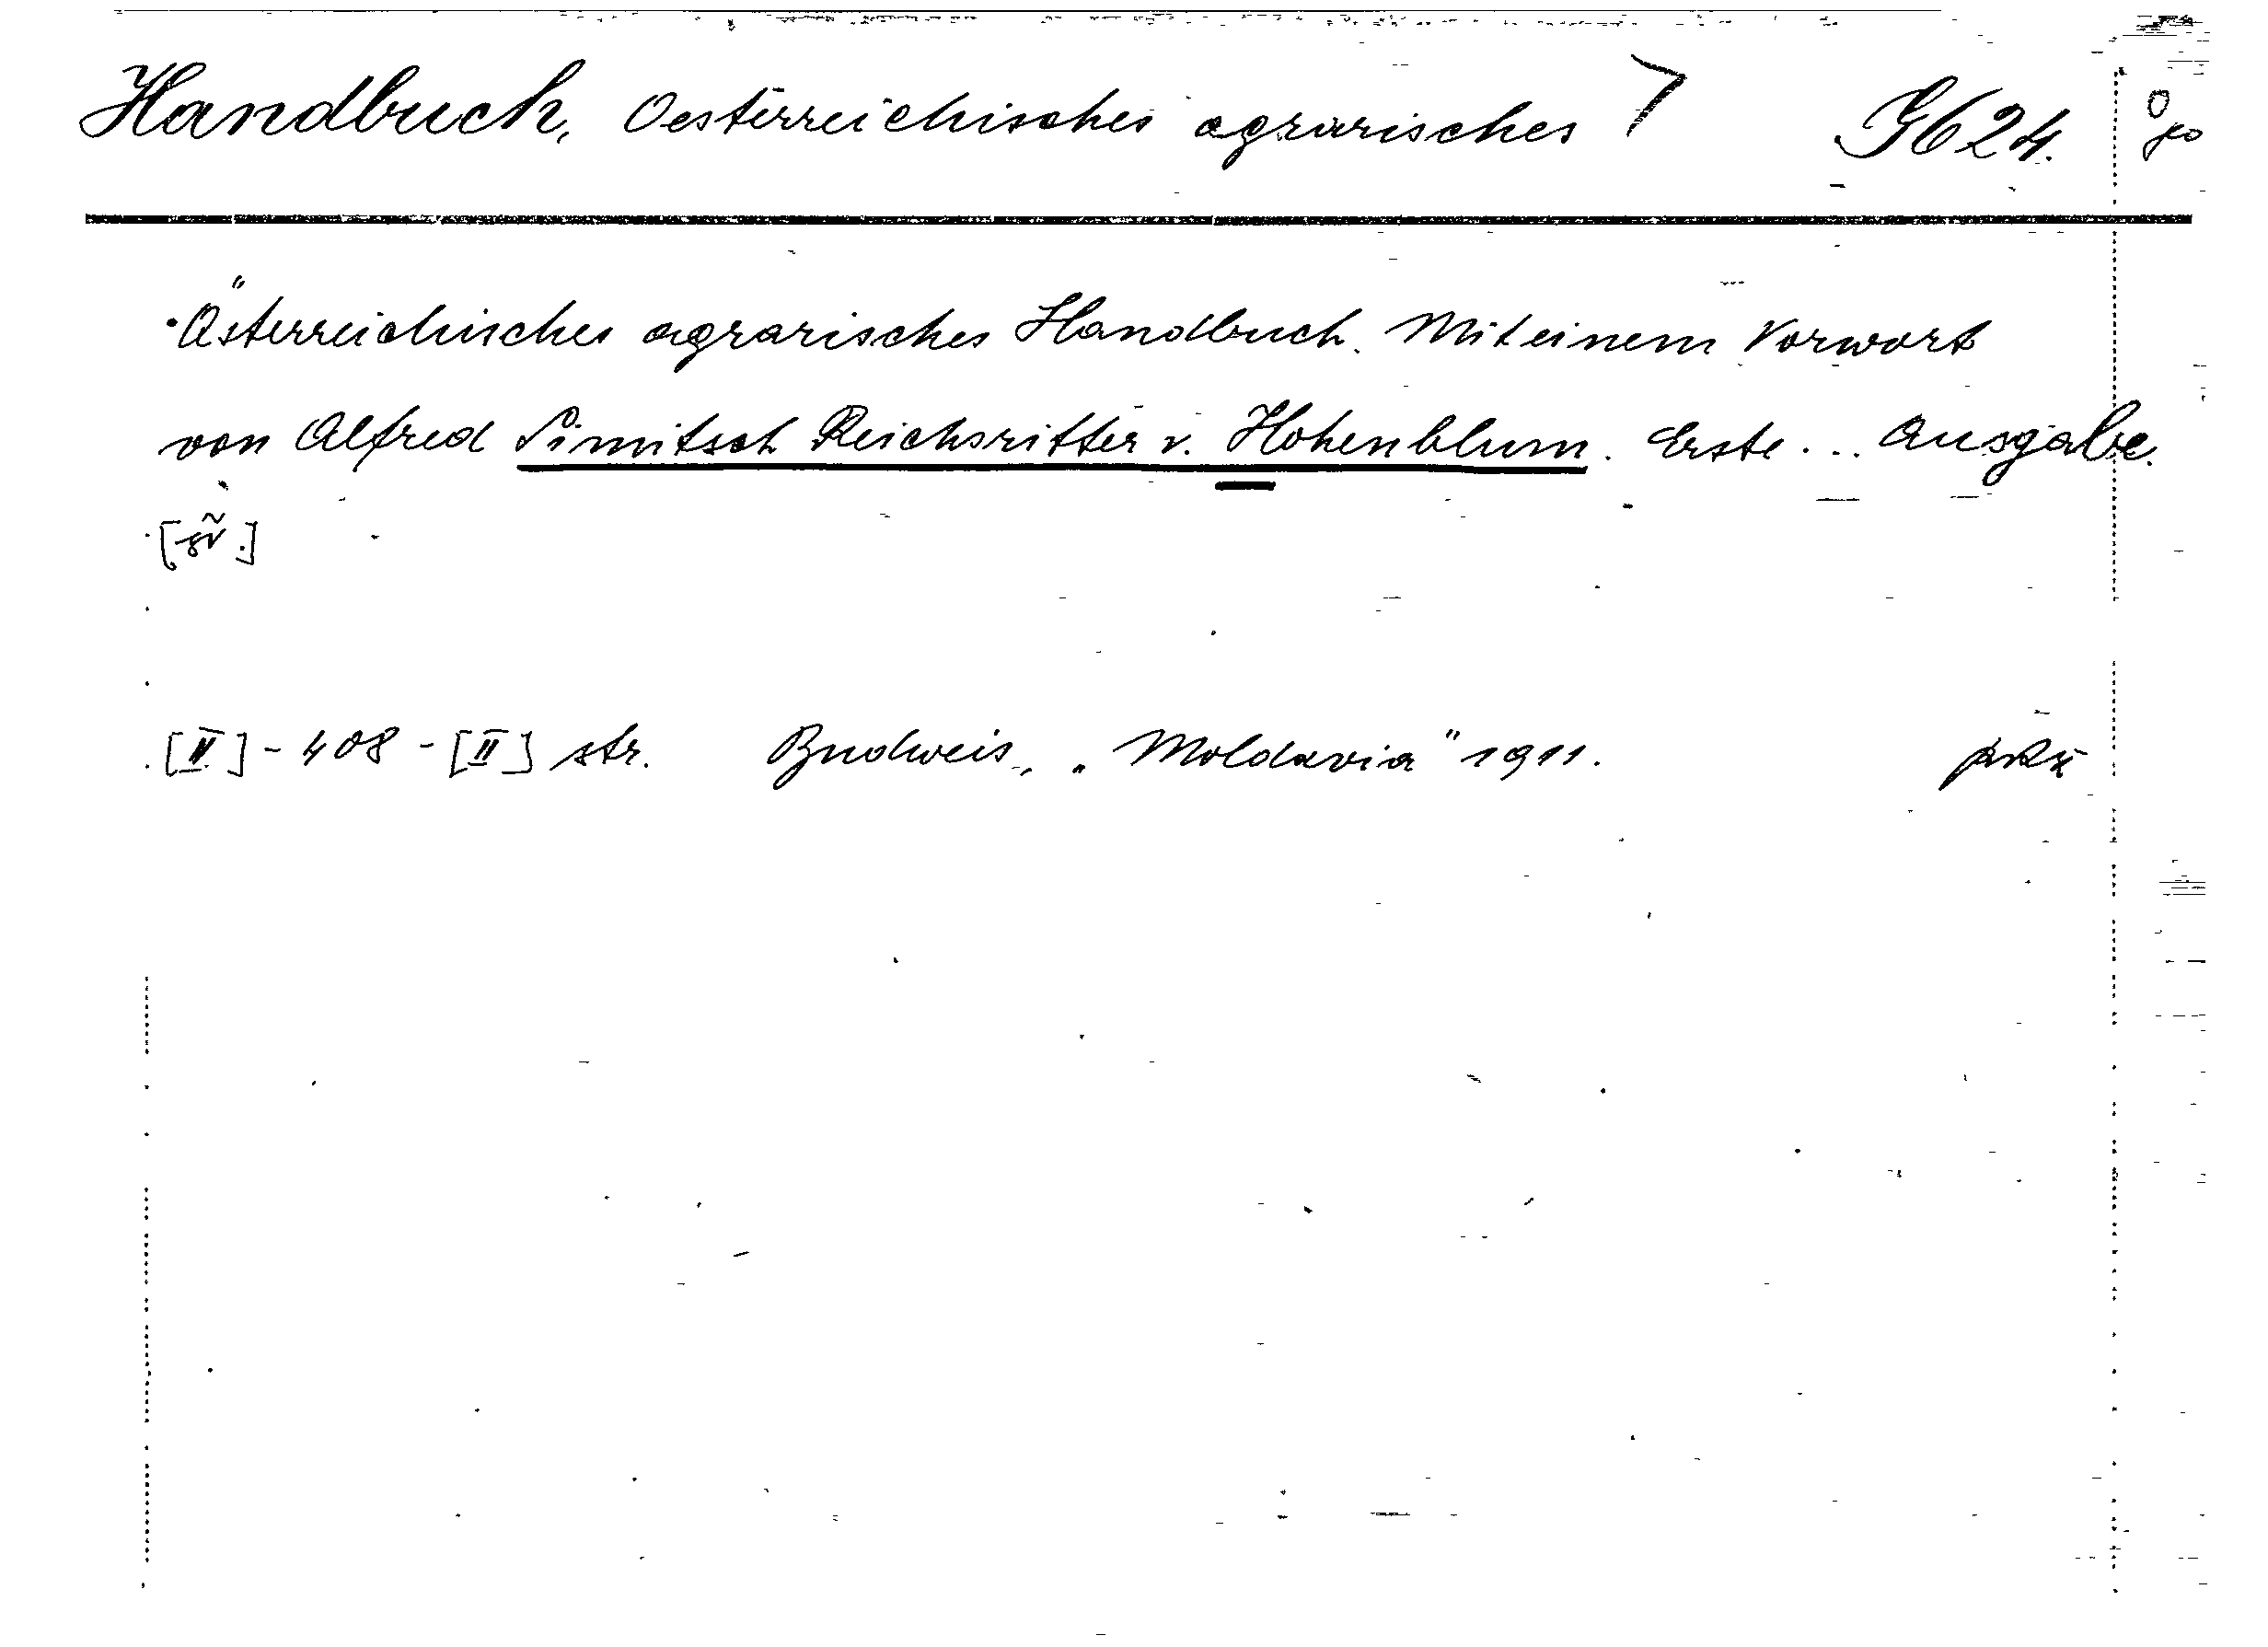 Handbuch, Oesterreichisches agrarisches G 624.
Österreichisches agrarisches Handbuch. Mit einem Vorwort
von Alfred Simitsch Reichsritter v. Hohenblum. Erste ... Ausgabe.
[II] - 408 - [II] str. Budweis, „Moldavia" 1911.